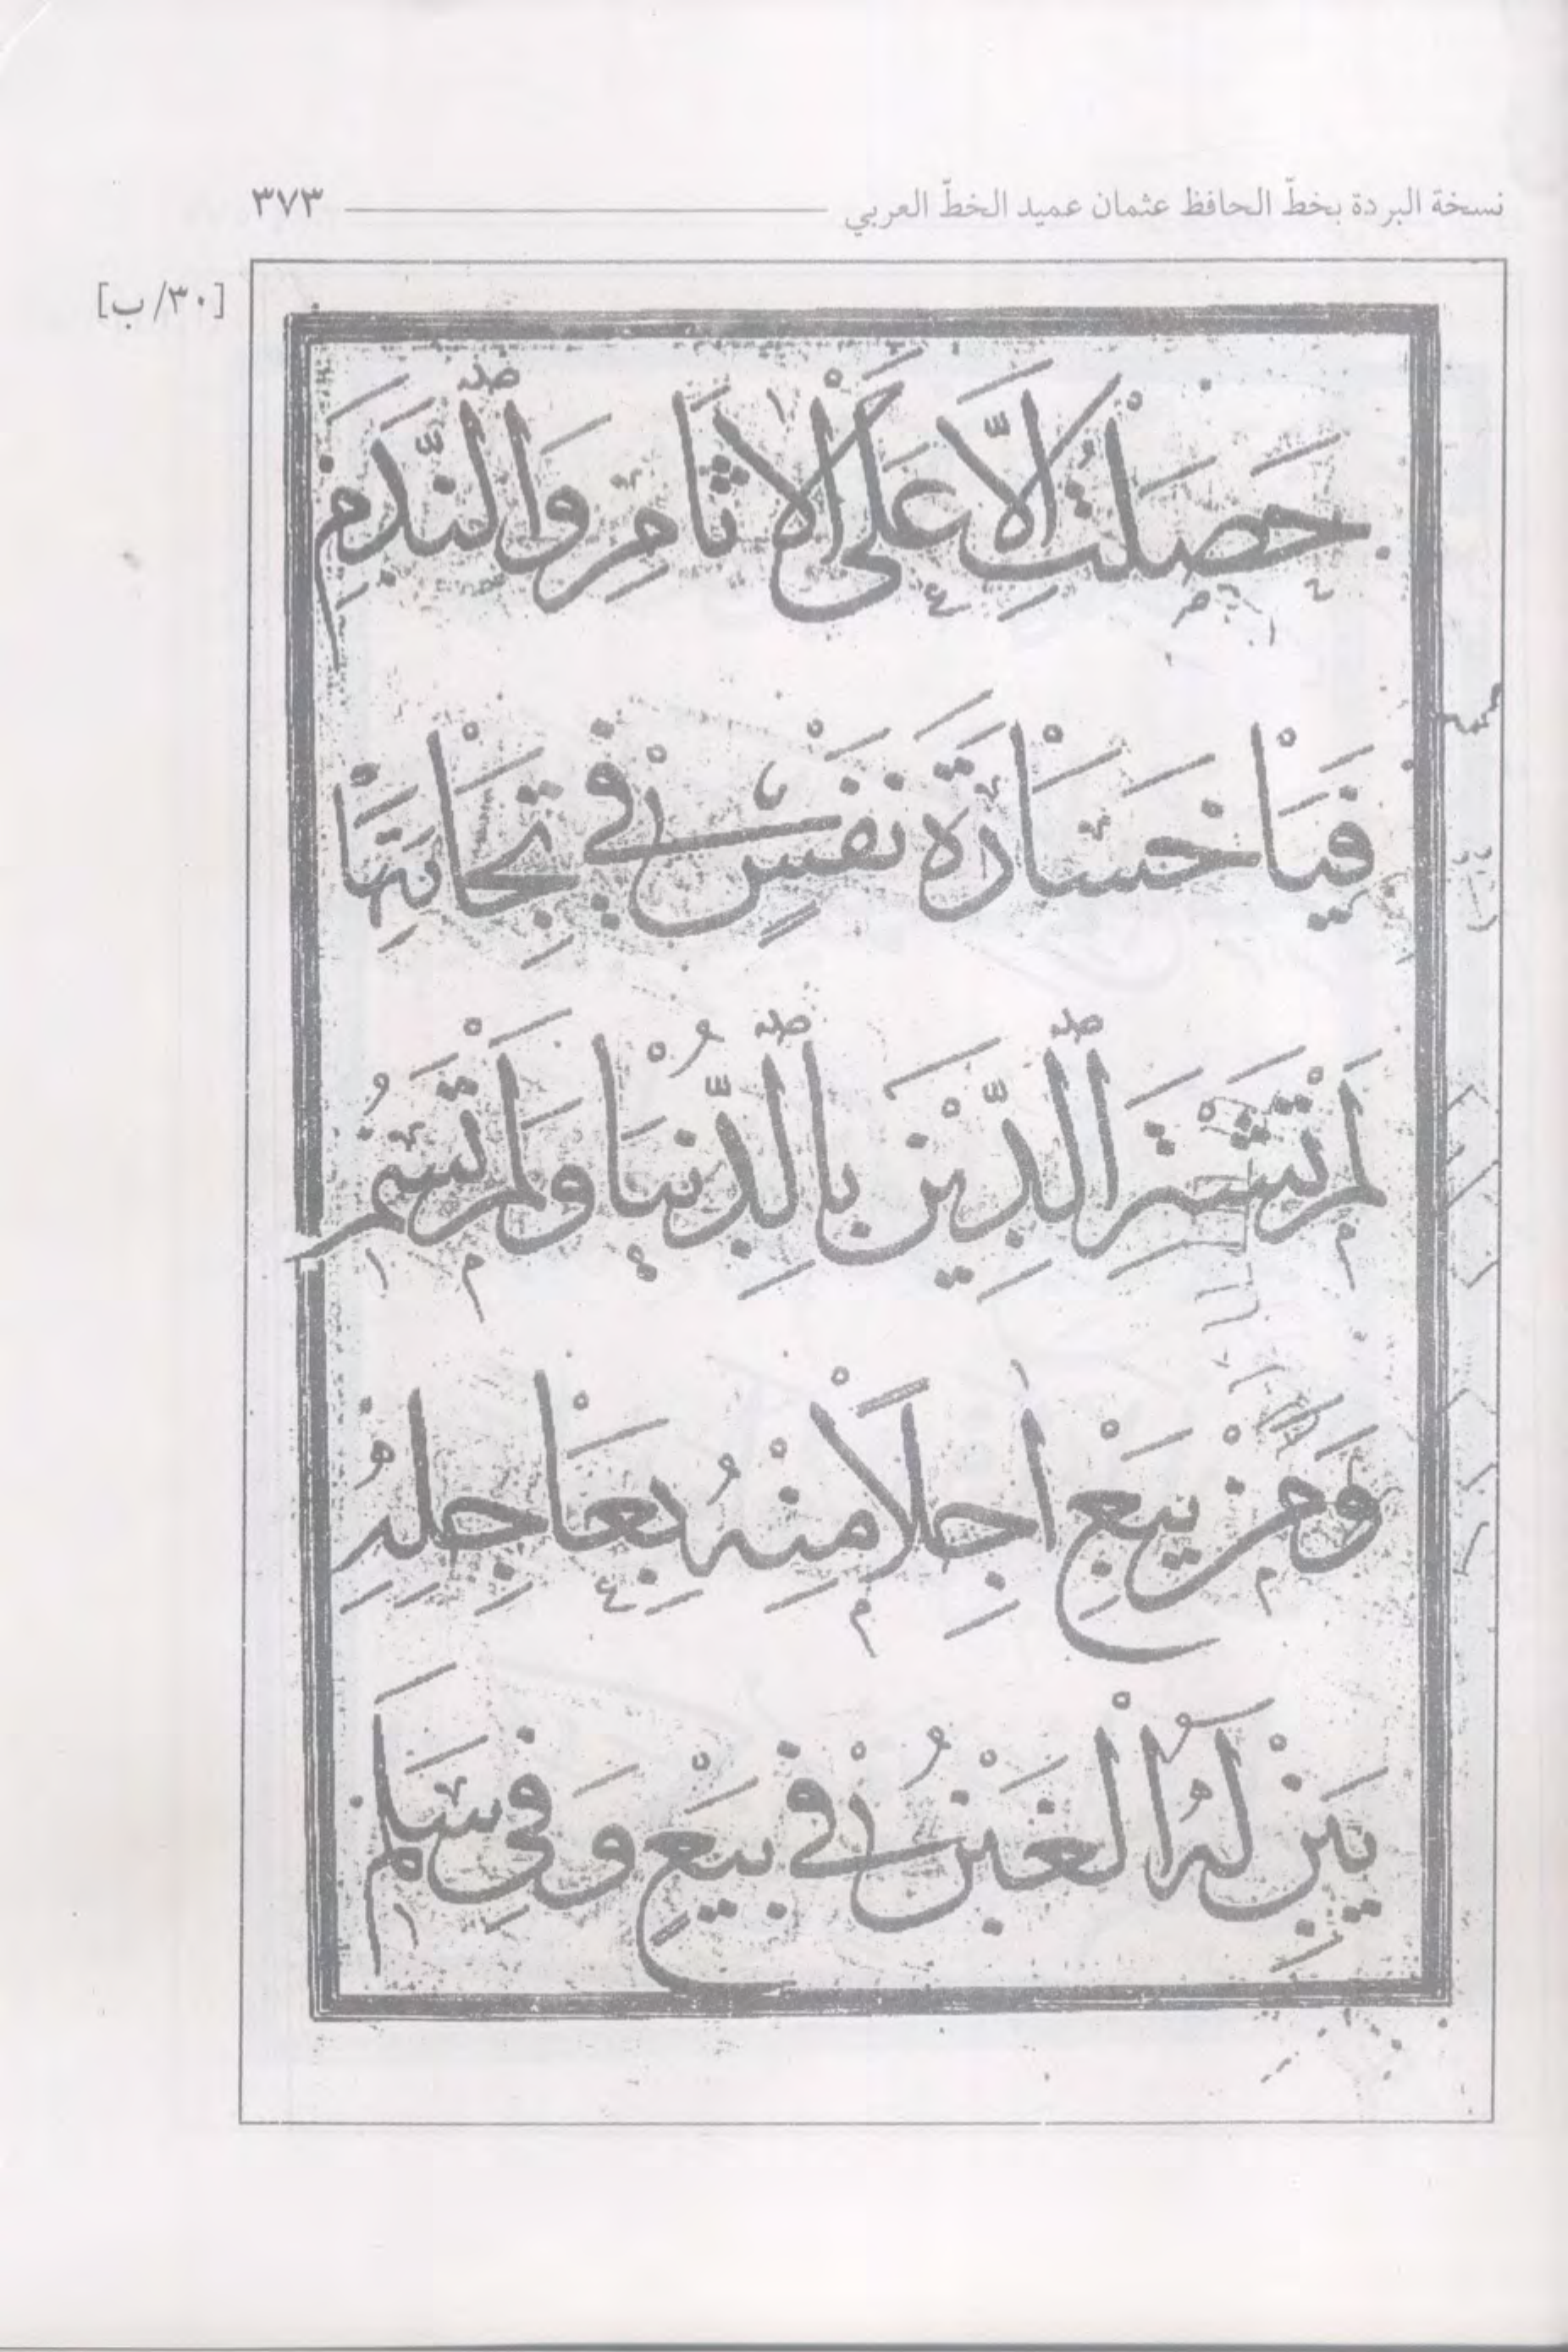 نسخة البردة بخطّ الحافظ عثمان عميد الخطّ العربي ٣٧٣
[٣٠/ب]
حَصَلْتُ اِلَّا عَلَى الْاٰثَامِ وَالنَّدَمِ
فَيَاْ خَسَاْرَةَ نَفْسٍ فِيْ تِجَاْرَتِهَاْ
لَمْ تَشْتَرِ الدِّيْنَ بِالدُّنْيَا وَلَمْ تَسُمِ
وَمَنْ يَبِعْ اٰجِلًا مِنْهُ بِعَاْجِلِهِ
يَبِنْ لَهُ الْغَبْنُ فِيْ بَيْعٍ وَفِيْ سَلَمِ